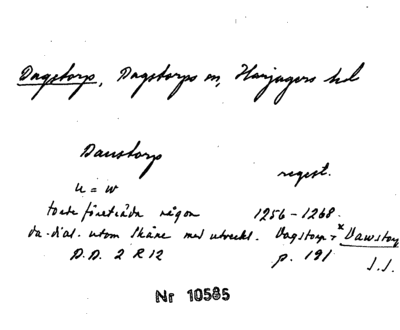 Dagstorp, Dagstorps sn, Harjagers hd
Daustorp
regist.
u = w
torde företräda någon 1256-1268.
da. dial. utom Skåne med utveckl. Dagstorp → *Dawstorp
D.D. 2 R 12 p. 191 J.J.
Nr 10585